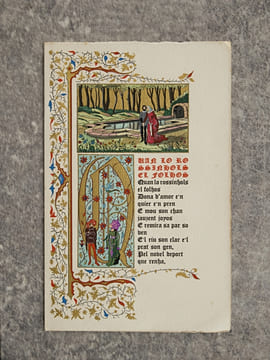 UAN LO RO
SSINHOLS
EL FOLHOS
Quan lo rossinhols
el folhos
Dona d'amor e'n
quier e'n pren
E mou son chan
jauzent joyos
E remira sa par so
ven
E'l riu son clar e'l
prat son gen,
Pel novel deport
que renha,